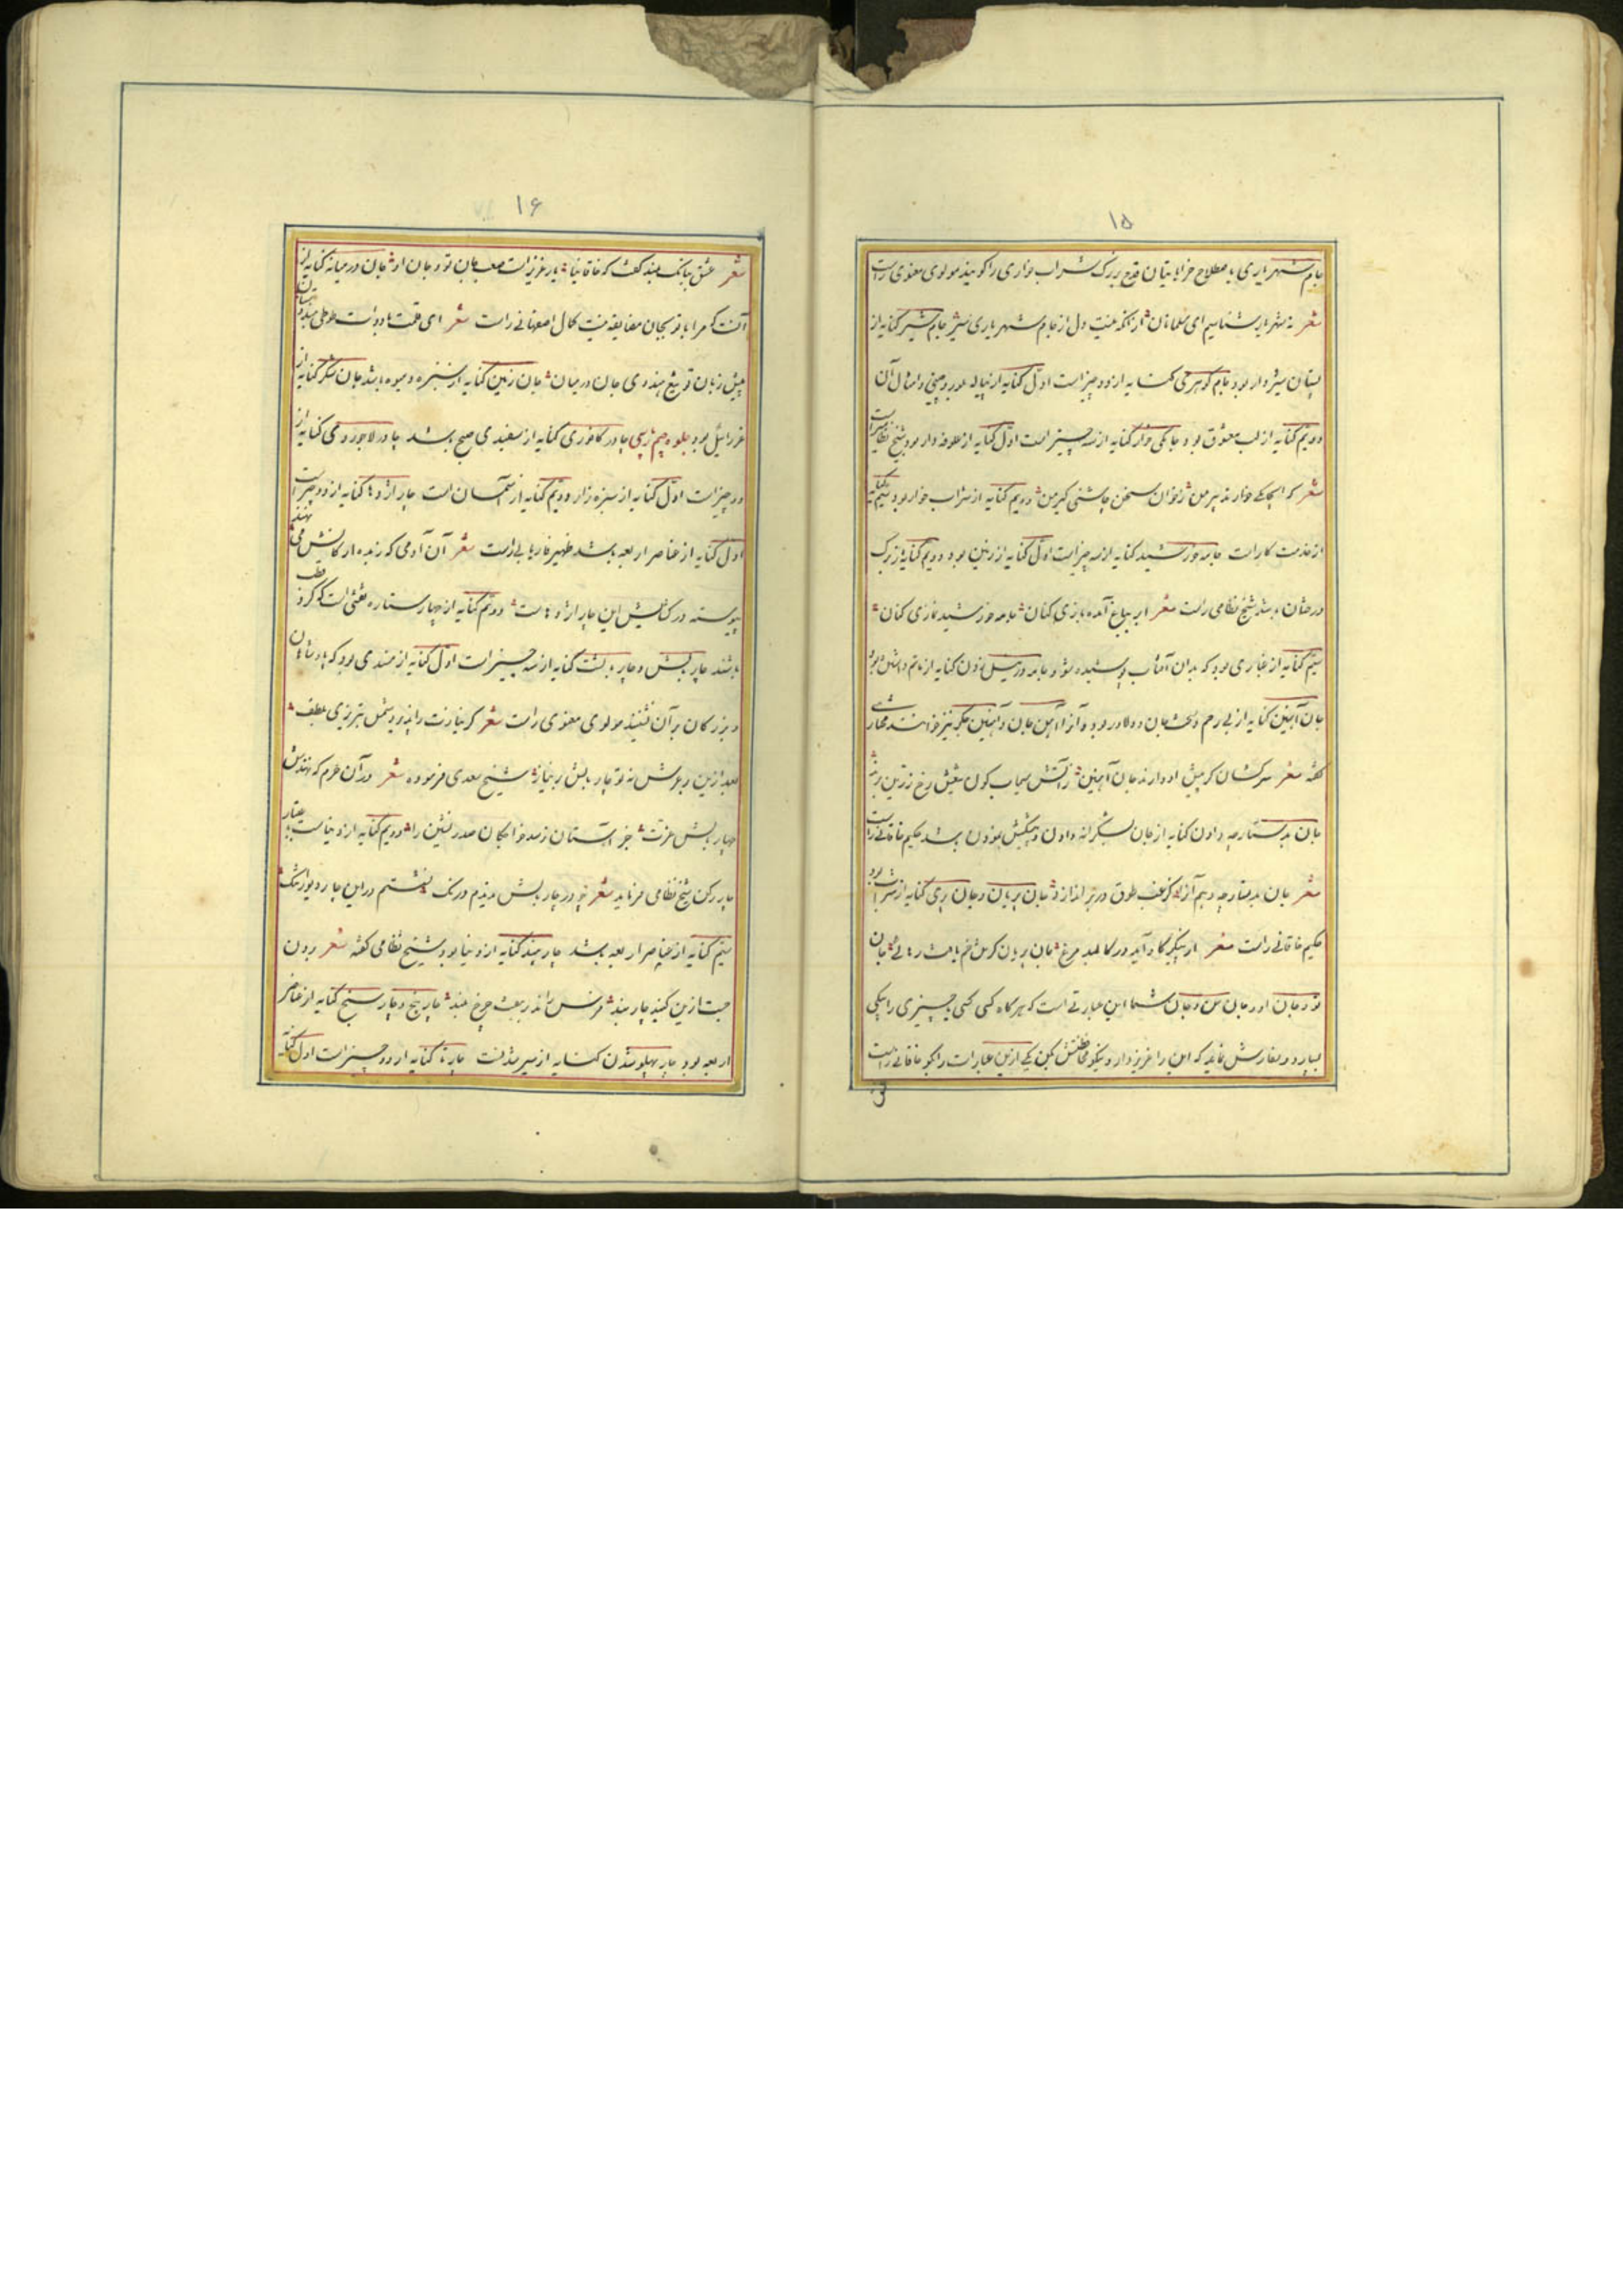 ۱۵
جام شهریاری باصطلاح خراباتیان قدح بزرگ شراب خواری را گویند مولوی معنوی راست
شعر نه شهریار شناسیم ای مسلمانان از آنکه نیست دل از جام شهریاری سیر جام شیر کنایه از
پستان شیردار بود جام گوهری کنایه از دو چیز است اول کنایه از پیاله بلور و چینی و امثال آن
دویم کنایه از لب معشوق بود جامگی خوار کنایه از سه چیز است اول کنایه از علوفه دار بود شیخ نظامی راست
شعر که ای جامگی خوار تدبیر من ز خوان سخن چاشنی گیر من دویم کنایه از شراب خوار بود سیم کنایه
از خدمت کار است جامه خورشید کنایه از سه چیز است اول کنایه از زمین بود دویم کنایه از برگ
درختان باشد شیخ نظامی راست شعر ابر بباغ آمده بازی کنان جامه خورشید نمازی کنان
سیم کنایه از غباری بود که بدان آفتاب پوشیده شود جامه در نیل زدن کنایه از ماتم داشتن بود
جان آهنین کنایه از بی رحم و سخت جان و دلاور بود و آنرا آهن جان و آهنین جگر نیز خوانند مختاری
گفته شعر سرکشان که پیش او دارند جان آهنین ز آتش سیماب گون تیغش رخ زرین برند
جان بدستارچه دادن کنایه از جان بشکرانه دادن و پیشکش نمودن باشد حکیم خاقانی راست
شعر جان بدستارچه دهم آنرا کز غبب طوق در بر اندازد جان پریان و جان پری کنایه از شراب بود
حکیم خاقانی راست شعر از پیکر گاو آید در کالبد مرغ جان پریان کز تن خم یافت رهائی جان
تو و جان او و جان من و جان شما این عبارتی است که هرگاه کسی بکسی چیزی را یکی
بسپارد و سفارش نماید که این را عزیز دار و نیکو محافظتش بکن یکی از این عبارات را بگو خاقانی راست
۱۶
شعر عشق ببانگ بلند گفت که خاقانیا یار عزیز است صعب جان تو و جان او جان در میانه کنایه از
آنست که مرا با تو بجان مضایقه نیست کمال اصفهانی راست شعر ای قلمت با دوات طوطی هندوستان
پیش زبان تو تیغ هندوی جان در میان جان زمین کنایه از سبزه و میوه باشد جان شکر کنایه از
عزرائیل بود جلوه جیم پارسی چادر کافوری کنایه از سفیدی صبح باشد چادر لاجوردی کنایه از
دو چیز است اول کنایه از سبزه زار دویم کنایه از آسمان است چار اژدها کنایه از دو چیز است
اول کنایه از عناصر اربعه باشد ظهیر فاریابی راست شعر آن آدمی که زبده ارکانش می نهند
پیوسته در کشاکش این چار اژدهاست دویم کنایه از چهار ستاره نعشی است که گرد قطب
باشند چار بالش و چار بالشت کنایه از سه چیز است اول کنایه از مسندی بود که پادشاهان
و بزرگان بر آن نشینند مولوی معنوی راست شعر
بعد ازین بر عرش نه تو چار بالش بر نیاز شیخ سعدی فرموده شعر در آن حرم که نهندش
چهار بالش عزت جز آستان نرسد خواجگان صدر نشین را دویم کنایه از دنیاست باعتبار
چار رکن شیخ نظامی فرماید شعر چو در چار بالش ندیدم درنگ نشستم در این چار دیوار تنگ
سیم کنایه از عناصر اربعه باشد چار بند کنایه از دنیا بود شیخ نظامی گفته شعر برون
جست ازین گنبد چار بند فرس راند بر هفت چرخ بلند چار پنج و چار سنج کنایه از عناصر
اربعه بود چار پهلو شدن کنایه از سیر شدنست چار تا کنایه از دو چیز است اول کنایه